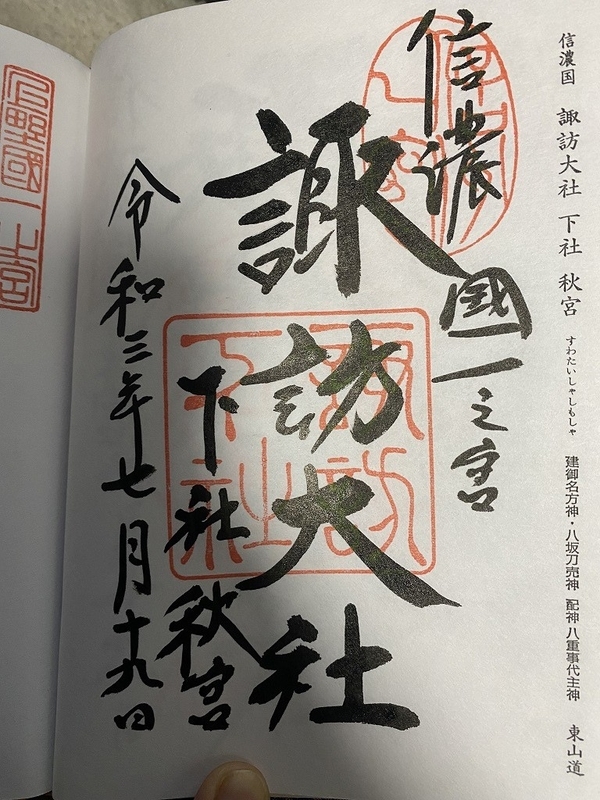 信濃国 諏訪大社 下社 秋宮 すわたいしゃしもしゃ 建御名方神・八坂刀売神 配神 八重事代主神 東山道
信濃國一之宮
諏訪大社
下社 秋宮
令和三年七月十九日